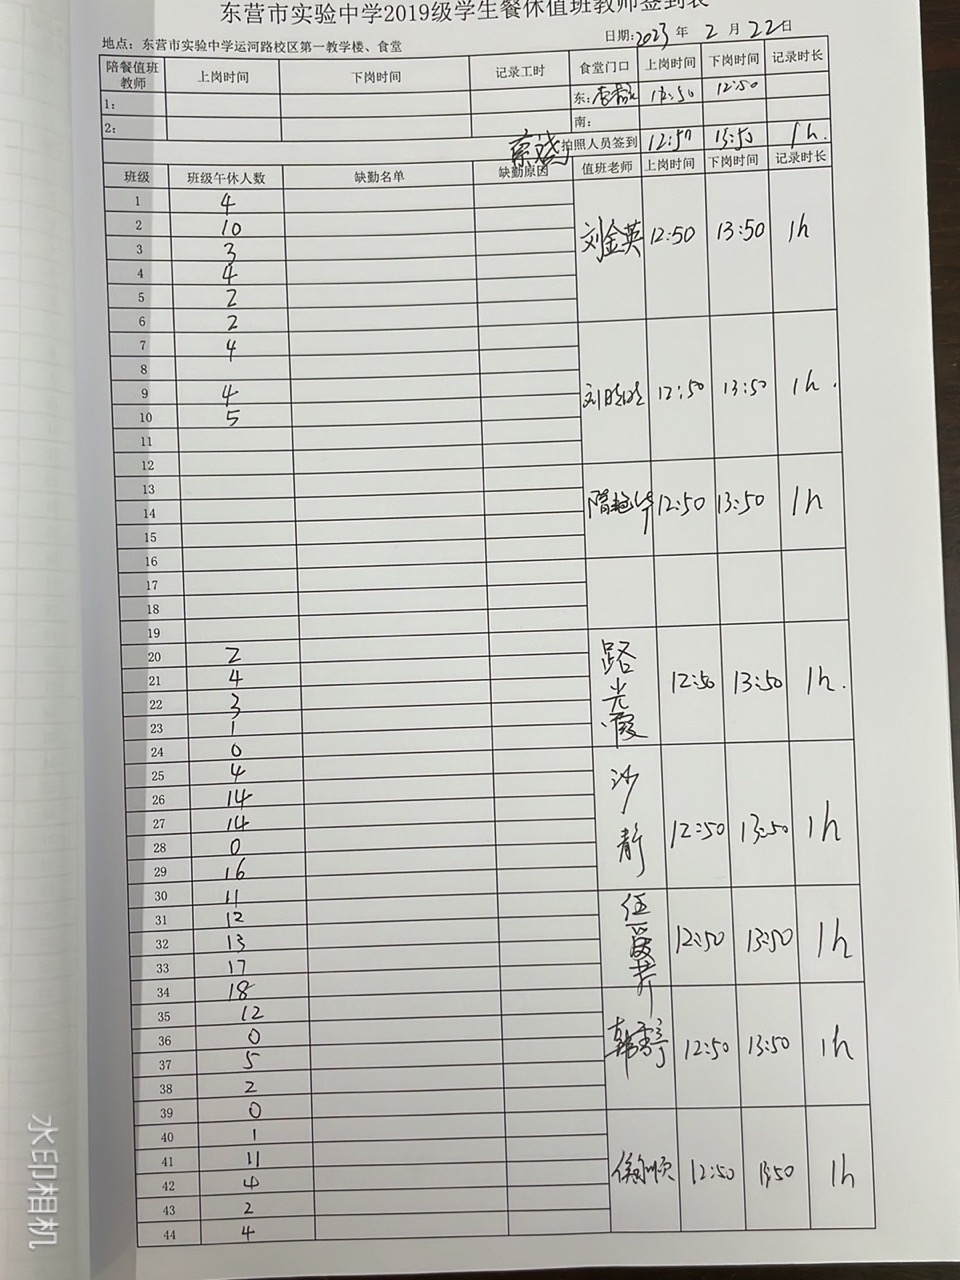 东营市实验中学2019级学生餐休值班教师签到表
地点：东营市实验中学运河路校区第一教学楼、食堂 日期:2023 年 2 月 22日
陪餐值班教师 上岗时间 下岗时间 记录工时 食堂门口 上岗时间 下岗时间 记录时长
1: 东: 12:50
2: 南:
拍照人员签到 12:50 13:50 1h.
班级 班级午休人数 缺勤名单 缺勤原因 值班老师 上岗时间 下岗时间 记录时长
1 4
2 10 刘金英 12:50 13:50 1h
3 3
4 4
5 2
6 2
7 4
8
9 4 刘晓晓 12:50 13:50 1h.
10 5
11
12
13
14 隋艳华 12:50 13:50 1h
15
16
17
18
19
20 2
21 4 路光霞 12:50 13:50 1h.
22 3
23 1
24 0
25 4
26 14
27 14 沙静 12:50 13:50 1h
28 0
29 16
30 11
31 12
32 13 12:50 13:50 1h
33 17
34 18
35 12
36 0 12:50 13:50 1h
37 5
38 2
39 0
40 1
41 11 12:50 13:50 1h
42 4
43 2
44 4
水印相机